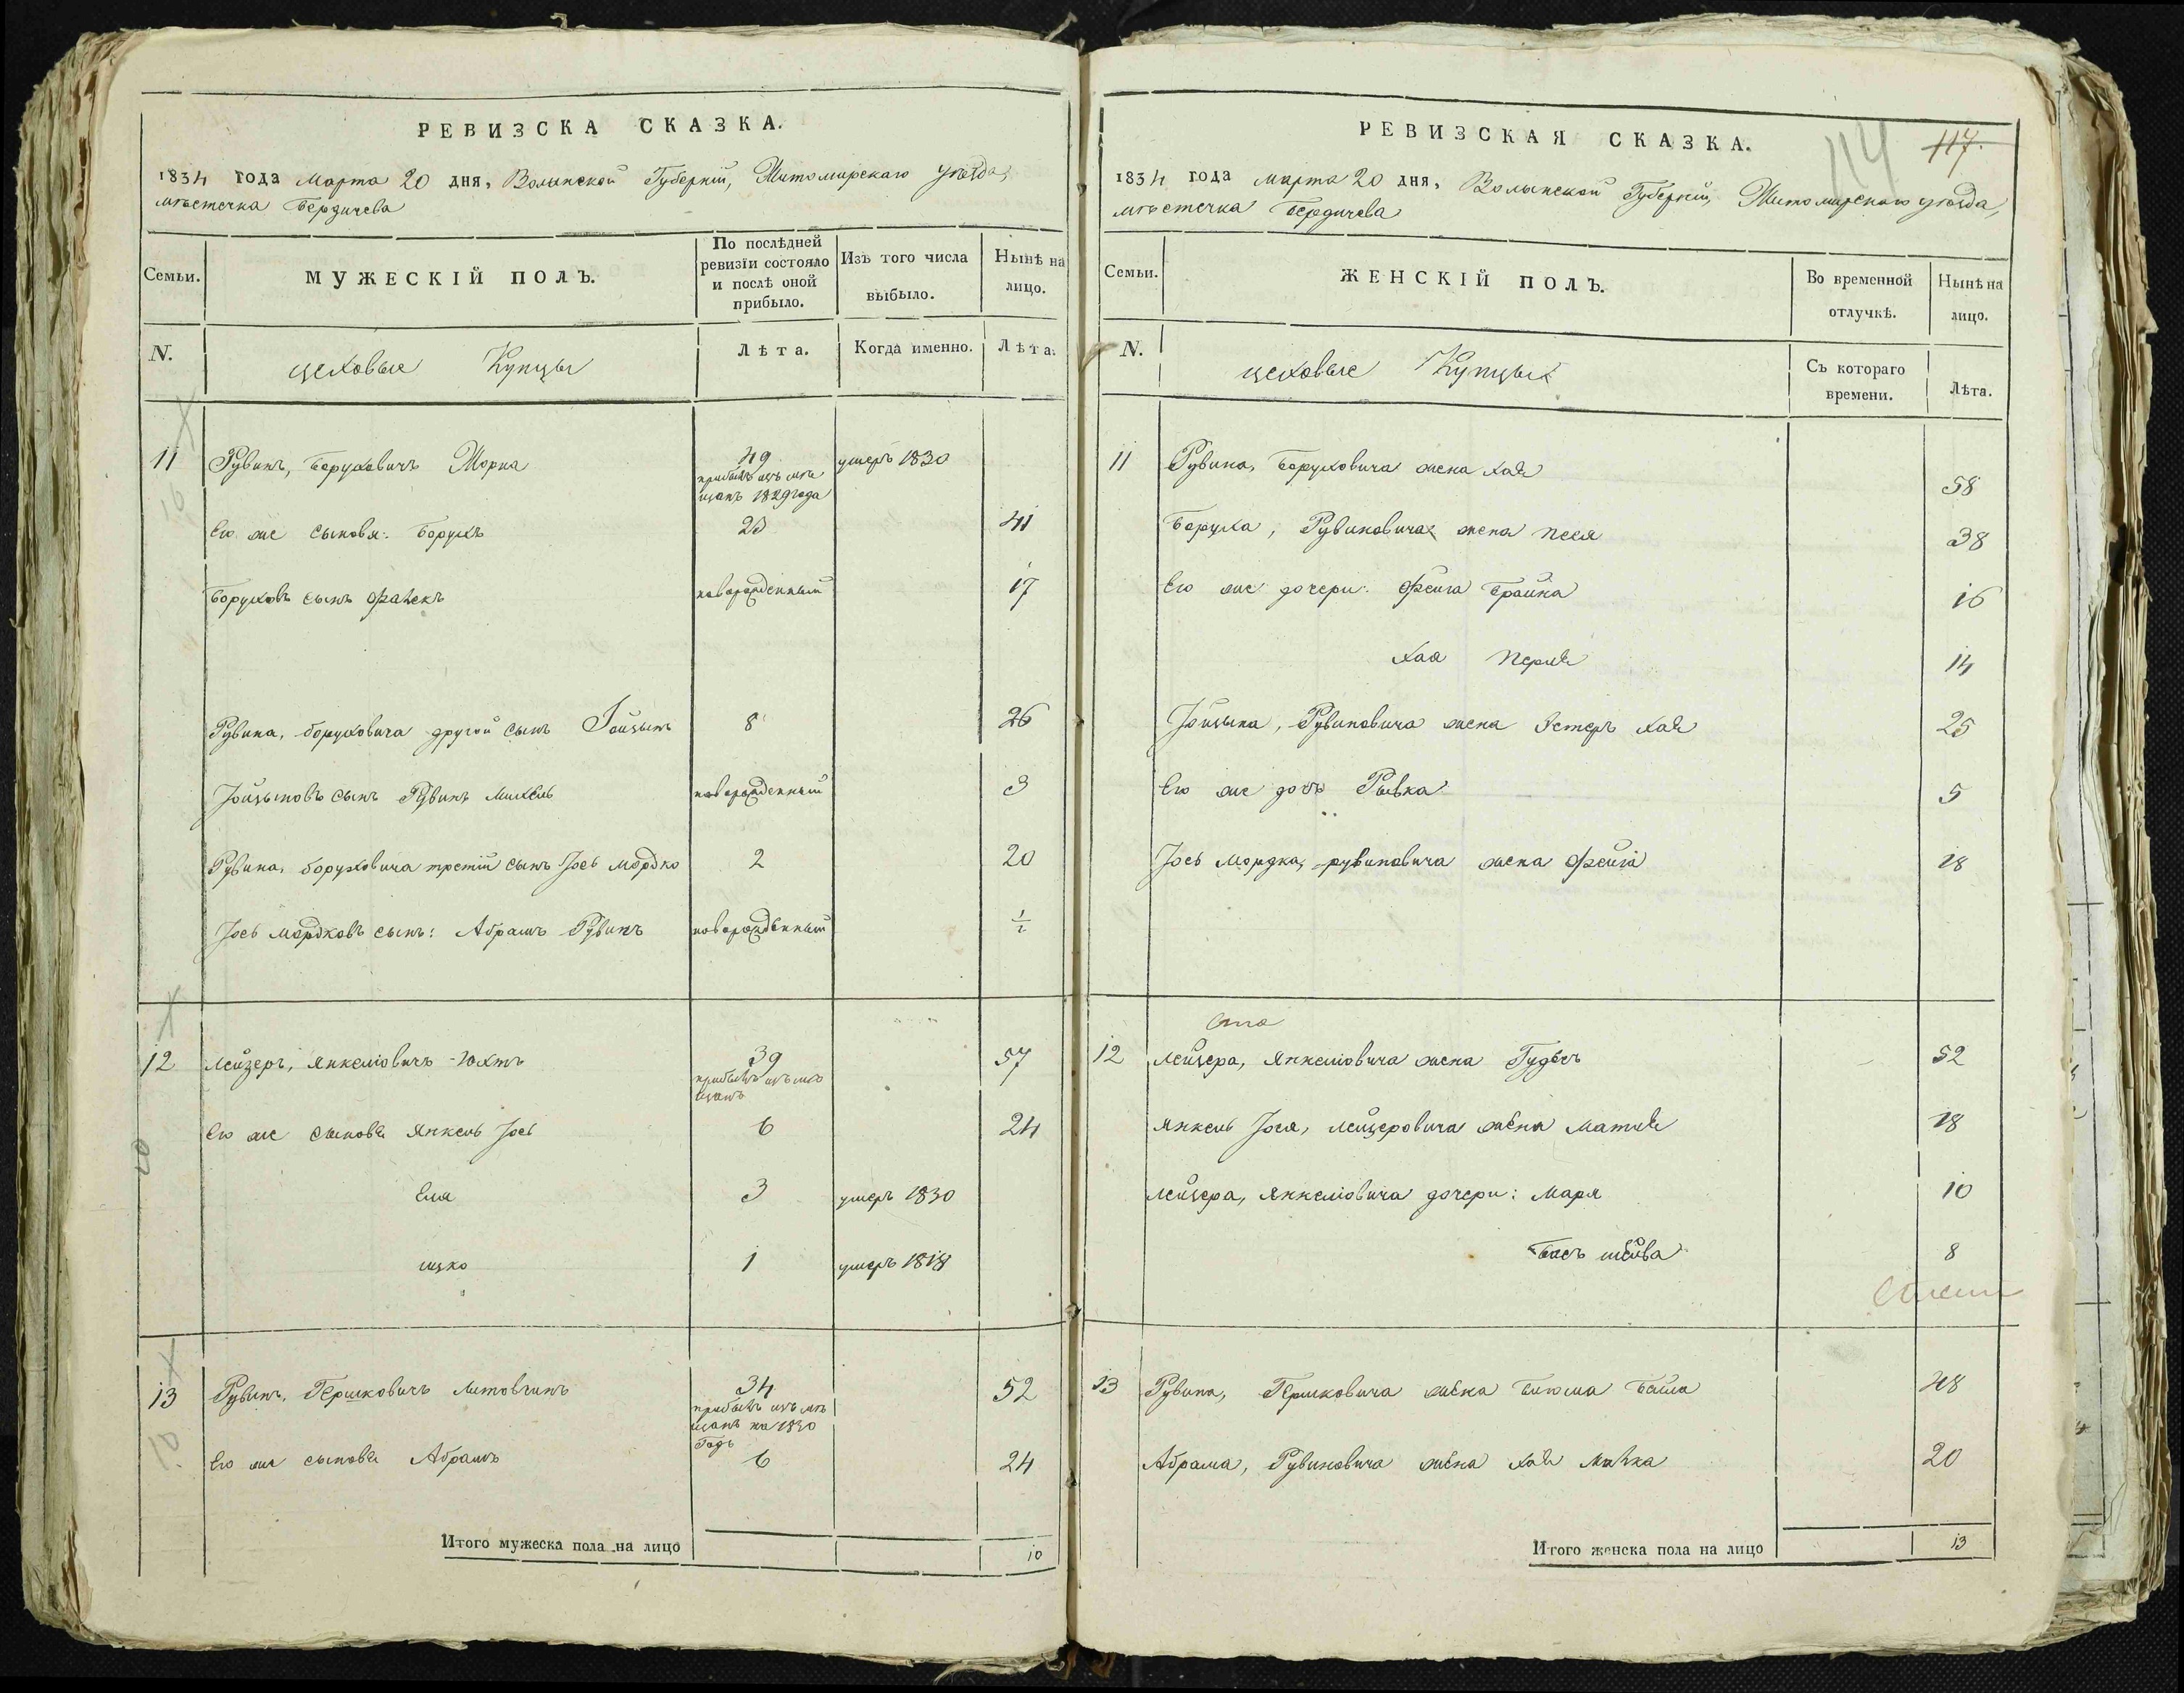 РЕВИЗСКА СКАЗКА.
1834 года Марта 20 дня, Волынской Губерніи, Житомирскаго уѣзда,
мѣстечка Бердичева
Семьи.
МУЖЕСКІЙ ПОЛЪ.
По послѣдней
ревизіи состояло
и послѣ оной
прибыло.
Изъ того числа
выбыло.
Нынѣ на
лицо.
N.
цеховые Купцы
Лѣта.
Когда именно.
Лѣта.
11 Рувинъ, Боруховичъ Морна 49 умеръ 1830
прибылъ изъ мѣ
щанъ 1829 года
Его же сыновя: Борухъ 23 41
Боруховъ сынъ новорожденный 17
Рувина, боруховича другой сынъ Іойцынъ 8 26
Іойцыновъ сынъ Рувинъ Михель новорожденный 3
Рувина, боруховича третій сынъ Іось Мордко 2 20
Іось Мордковъ сынъ: Абрамъ Рувинъ новорожденный 1/2
12 Лейзеръ, Янкеліовичъ Юхтъ 39 57
прибылъ изъ мѣ
щанъ
Его же сыновя Янкель Іось 6 24
Еля 3 умеръ 1830
ицко 1 умеръ 1818
13 Рувинъ, Гершковичъ Литовчинъ 34 52
прибылъ изъ мѣ
щанъ на 1830
Годъ
Его же сыновя Абрамъ 6 24
Итого мужеска пола на лицо 10
РЕВИЗСКАЯ СКАЗКА.
114 117.
1834 года Марта 20 дня, Волынской Губерніи, Житомирскаго уѣзда,
мѣстечка Бердичева
Семьи.
ЖЕНСКІЙ ПОЛЪ.
Во временной
отлучкѣ.
Нынѣ на
лицо.
N.
цеховые Купцы
Съ котораго
времени.
Лѣта.
11 Рувина, Боруховича жена Хая 58
Боруха, Рувиновича жена Песя 38
Его же дочери: Фейга Брайна 16
Хая Перля 14
Іойцына, Рувиновича жена Эстеръ Хая 25
Его же дочъ Рывка 5
Іось Мордка, рувиновича жена Фейга 18
12 Лейзера, Янкеліовича жена Гудесъ 52
Янкель Іося, лейзеровича жена Матля 18
Лейзера, Янкеліовича дочери: Маря 10
Бась шейва 8
13 Рувина, Гершковича жена Блюма Башa 48
Абрама, Рувиновича жена Хая 20
Итого женска пола на лицо 13